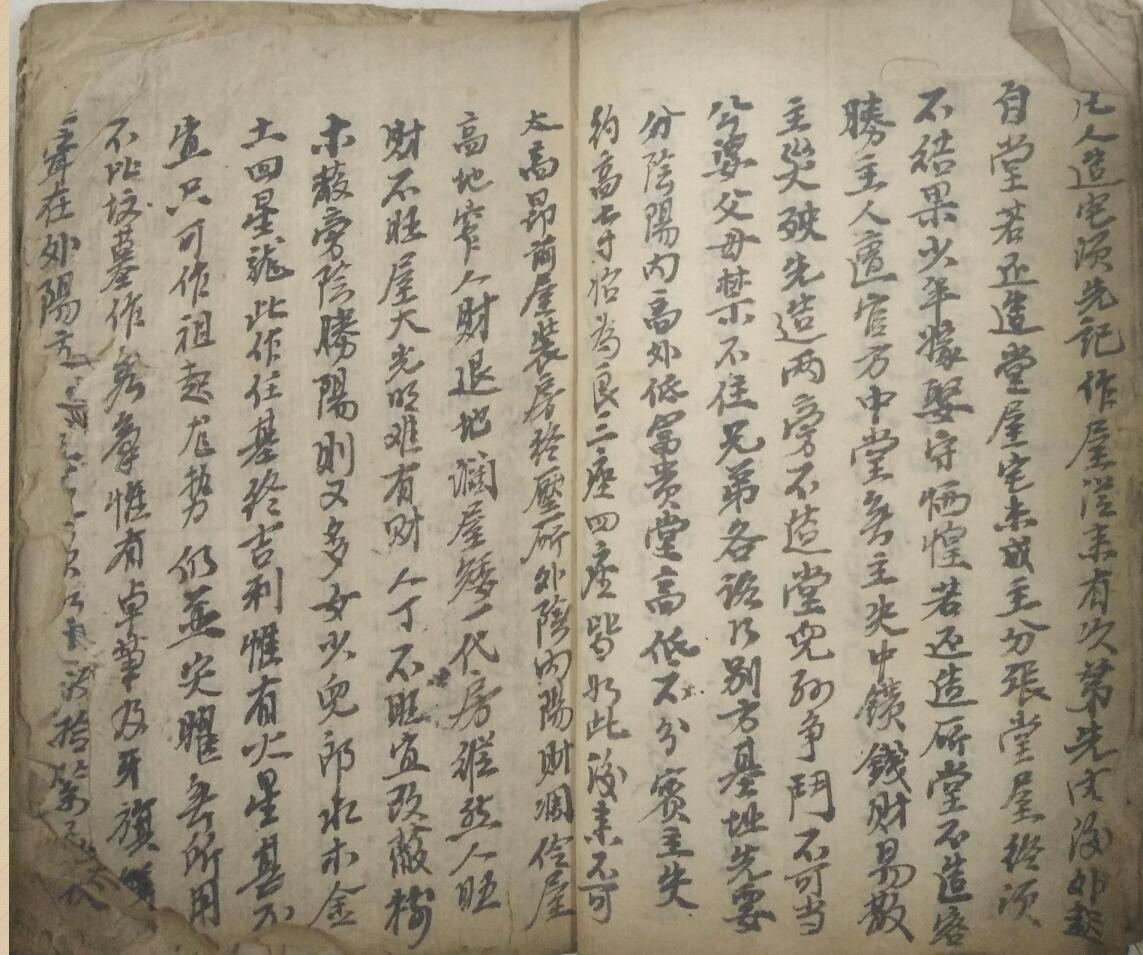 凡人造宅須先記作屋從来有次第先内後外起
自堂若还造堂屋宅未成主分張堂屋終須
不結果少年嫁娶守恓惶若还造厛堂不造客
勝主人遭官方中堂無主失中饋錢財易散
主災殃先造两旁不造堂兒孙争鬥不可当
公婆父母禁不住兄弟各論另別方基址先要
分陰陽内高外低富贵堂高低不分賓主失
約高七寸恰為良三座四座皆如此後来不可
太高昻前屋装房終壓厛外陰内陽财凋伶屋
高地窄人财退地濶屋矮一代房縦然人旺
财不旺屋大光明难有财人丁不旺宜改蔽樹
木蔽旁陰勝陽則又多女少兒郎水木金
土四星龍此作住基終吉利惟有火星甚不
宜只可作祖起龙勢仍無尖曜無所用
不比坟墓作無辜惟有卓筆及牙旗
聳在外陽方